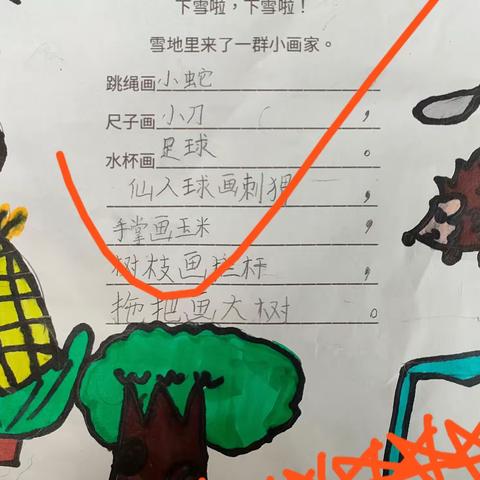 下雪啦，下雪啦！
雪地里来了一群小画家。
跳绳画小蛇
尺子画小刀，
水杯画足球。
仙人球画刺猬，
手掌画玉米，
树枝画栏杆，
拖把画大树。